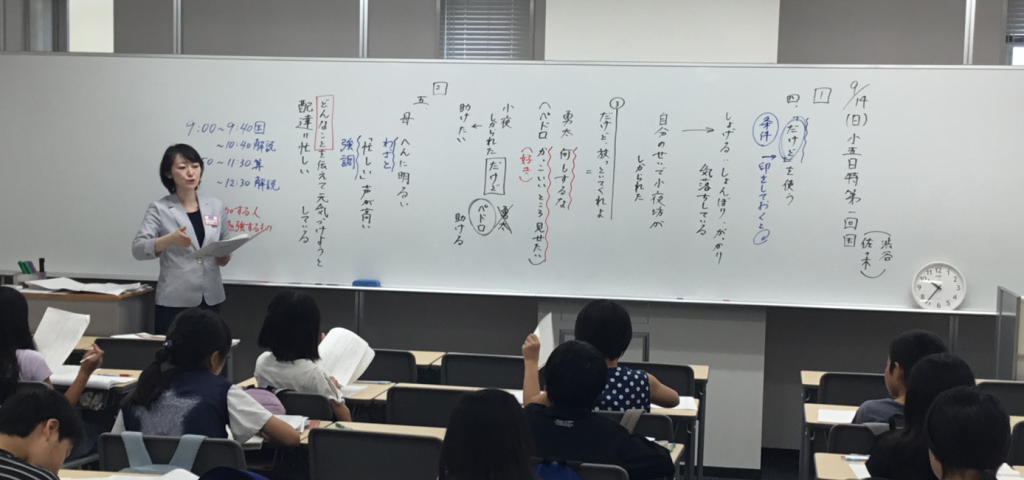 9/14(日)小五日特第一回国
(渋谷
佐木)
1
四、「だけど」を使う
条件→印をしておくと
しょげる…しょんぼり、がっかり
気落ちしている
→自分のせいで小夜坊が
しかられた
①
だけど、放っといてくれよ
=
勇太 何しするな
(ペドロ が、こいいところ 見せたい)
(好き)
小夜
しかられた だけど 勇太
ペドロ
↓
助けたい 助ける
2
五 母 へんに明るい
わざと
「忙しい」声が高い
強調
どんなことを伝えて元気づけようと
している
配達は忙しい
9:00~9:40 国
~10:40 解説
50~11:30 算
~12:30 解説
加する人
勉強するもの